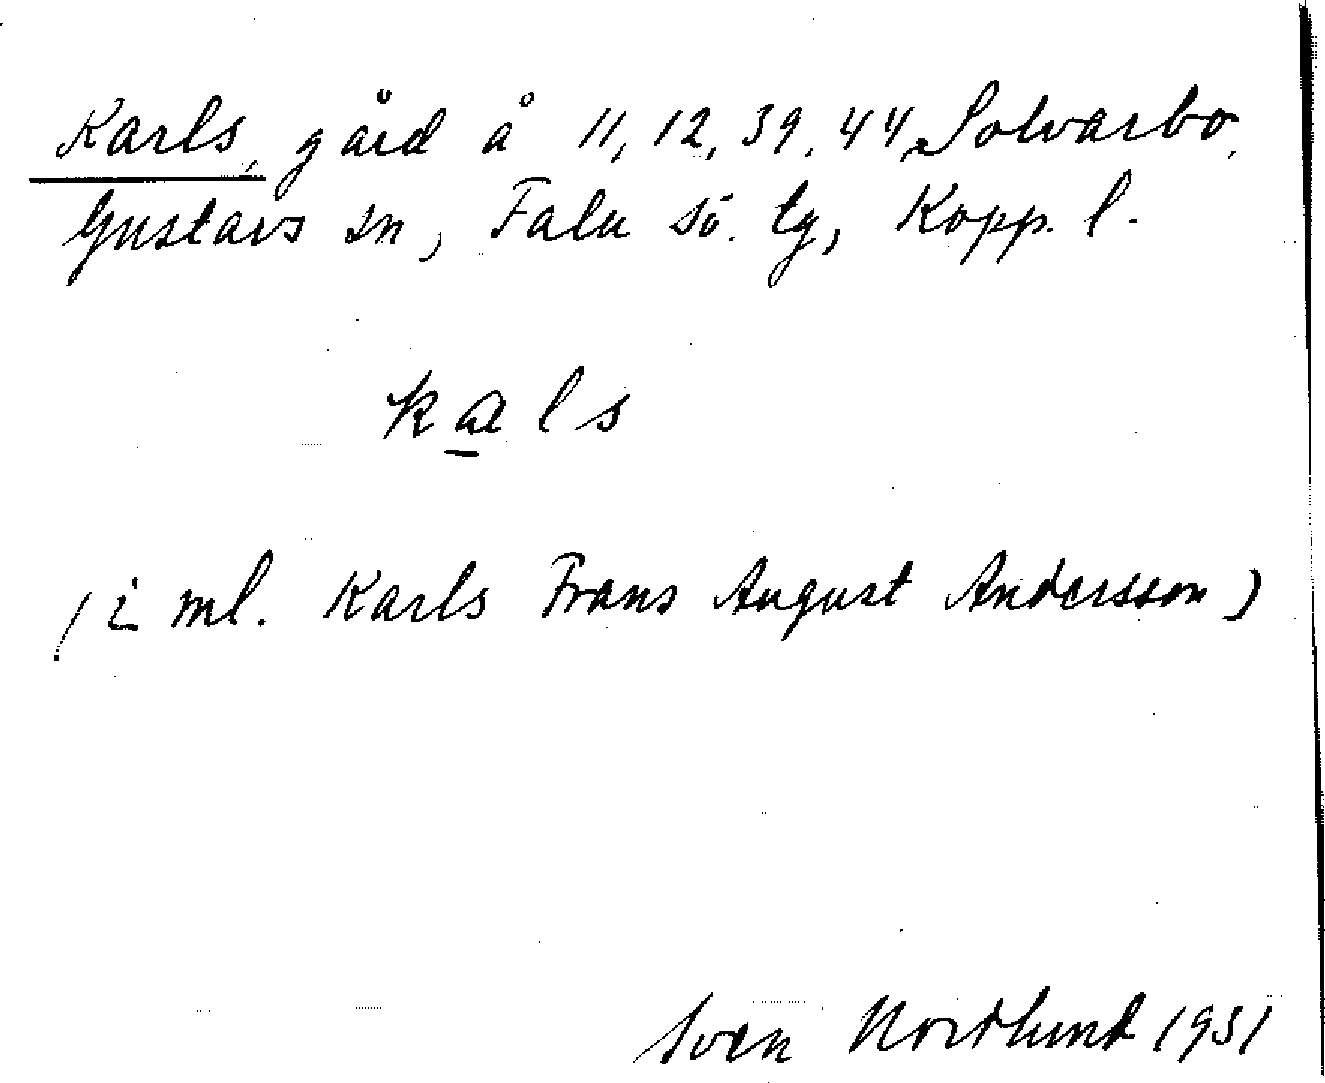 Karls, gård å 11, 12, 39, 44, Solvarbo,
Gustavs sn, Falu sö. tg, Kopp. l.
kals
(i ml. Karls Frans August Andersson)
Sven Nordlund 1931